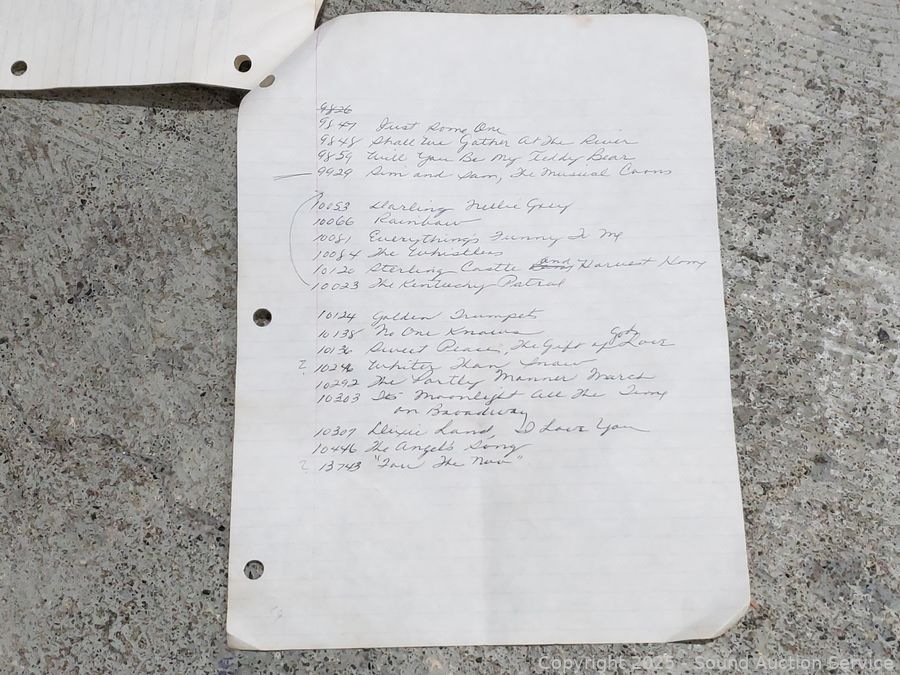 9826
9847 Just Some One
9848 Shall We Gather At The River
9859 Will You Be My Teddy Bear
9929 Sim and Sam, The Musical Coons
10053 Darling Nellie Grey
10066 Rainbow
10081 Everything's Funny To Me
10084 The Whistlers
10120 Sterling Castle and Harvest Home
10023 The Kentucky Patrol
10124 Golden Trumpets
10138 No One Knows
10136 Sweet Peace, The Gift of Gods Love
? 10246 Whiter Than Snow
10292 The Manner March
10303 Its Moonlight All The Time
on Broadway
10307 Dixie Land, I Love You
10446 The Angel's Song
? 13743 "Fou The Noo"
Copyright 2025 - Sound Auction Service